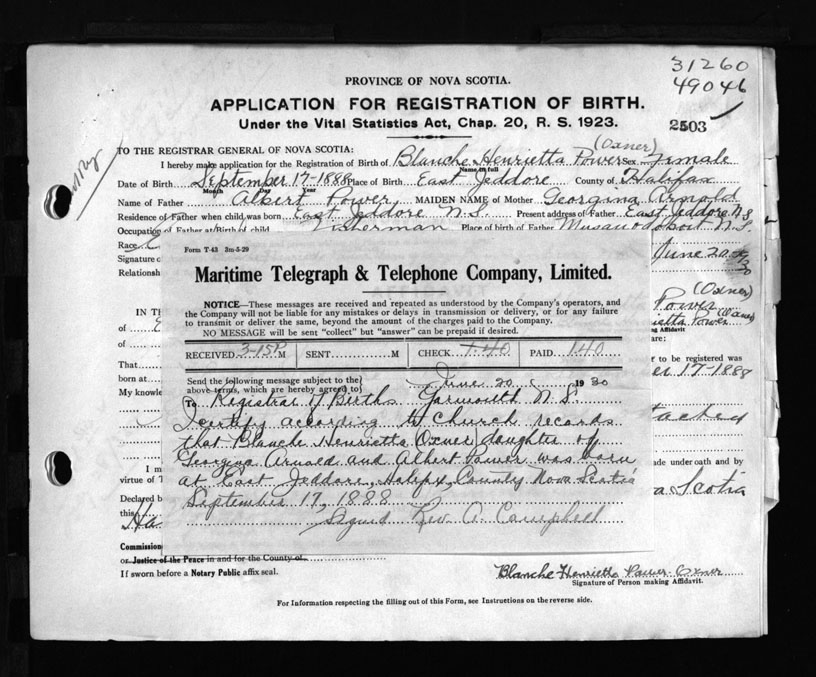 31260
49046
PROVINCE OF NOVA SCOTIA.
APPLICATION FOR REGISTRATION OF BIRTH.
Under the Vital Statistics Act, Chap. 20, R. S. 1923.
2503
TO THE REGISTRAR GENERAL OF NOVA SCOTIA:
(Oxner)
I hereby make application for the Registration of Birth of Blanche Henrietta Power Sex Female
Name in full
Date of Birth September 17-1888 Place of Birth East Jeddore County of Halifax
Month Day Year
Name of Father Albert Power, MAIDEN NAME of Mother Georgina Arnold
Residence of Father when child was born East Jeddore N.S. Present address of Father East Jeddore N.S.
Occupation of Father at Birth of child Fisherman Place of birth of Father Musquodoboit N.S.
Race
Signature o June 20
Relationsh
(Oxner)
IN TH Power
of E rietta Power (Oxner)
ng Affidavit.
of
That er to be registered was
born at er 17-1888
My knowle
tached
I m ade under oath and by
virtue of T
Declared b a Scotia
this
Ha
Form T-43 3m-5-29
Maritime Telegraph & Telephone Company, Limited.
NOTICE—These messages are received and repeated as understood by the Company's operators, and
the Company will not be liable for any mistakes or delays in transmission or delivery, or for any failure
to transmit or deliver the same, beyond the amount of the charges paid to the Company.
NO MESSAGE will be sent "collect" but "answer" can be prepaid if desired.
RECEIVED 3-15P M SENT M CHECK 1.40 PAID 1.40
Send the following message subject to the
above terms, which are hereby agreed to June 20 1930
To Registrar of Births Yarmouth N.S.
I certify according to church records
that Blanche Henrietta Oxner daughter of
Georgina Arnold and Albert Power was born
at East Jeddore, Halifx County Nova Scotia
September 17, 1888
Signed Rev. A. Campbell
Commission
or Justice of the Peace in and for the County of
If sworn before a Notary Public affix seal.
Blanche Henrietta Power Oxner
Signature of Person making Affidavit.
For Information respecting the filling out of this Form, see Instructions on the reverse side.